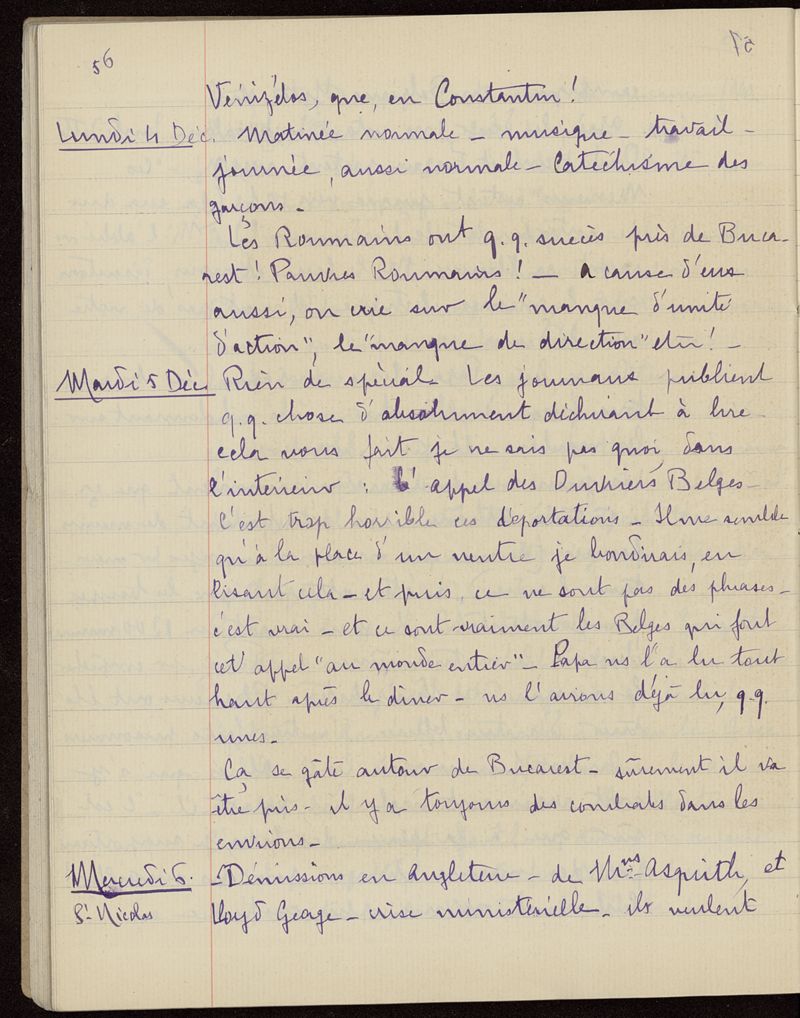 56
57
Vénizélos, que, en Constantin!
Lundi 4 Déc. Matinée normale - musique - travail -
journée, aussi normale - Catéchisme des
garçons -
Les Roumains ont q.q. succès près de Buca-
rest! Pauvres Roumains! - A cause d'eux
aussi, on crie sur le "manque d'unité
d'action", le "manque de direction" etc! -
Mardi 5 Déc. Rien de spécial. Les journaux publient
q.q. chose d'absolument déchirant à lire -
cela vous fait je ne sais pas quoi, dans
l'intérieur : L'appel des Ouvriers Belges -
C'est trop horrible ces déportations - Il me semble
qu'à la place d'un neutre je bondirais, en
lisant cela - et puis, ce ne sont pas des phrases -
c'est vrai - et ce sont vraiment les Belges qui font
cet appel "au monde entier" - Papa ns l'a lu tout
haut après le dîner - ns l'avions déjà lu, q.q.
unes -
Ça se gâte autour de Bucarest - sûrement il va
être pris - il y a toujours des combats dans les
environs -
Mercredi 6. - Démissions en Angleterre - de Mrs Asquith, et
St Nicolas Lloyd George - crise ministérielle - ils veulent